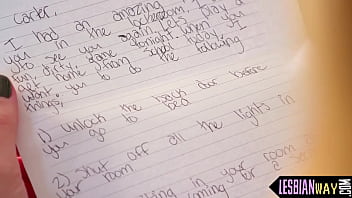 Carter,
I had an amazing
you in the bathroom. I
to see you again. Let's play a
fun, dirty game tonight. When you
get home from school today, I
want you to do the following
things:
1) unlock the back door before
you go to bed
2) shut off all the lights in
your room
in your room
coming for a
LESBIANWAY
.COM